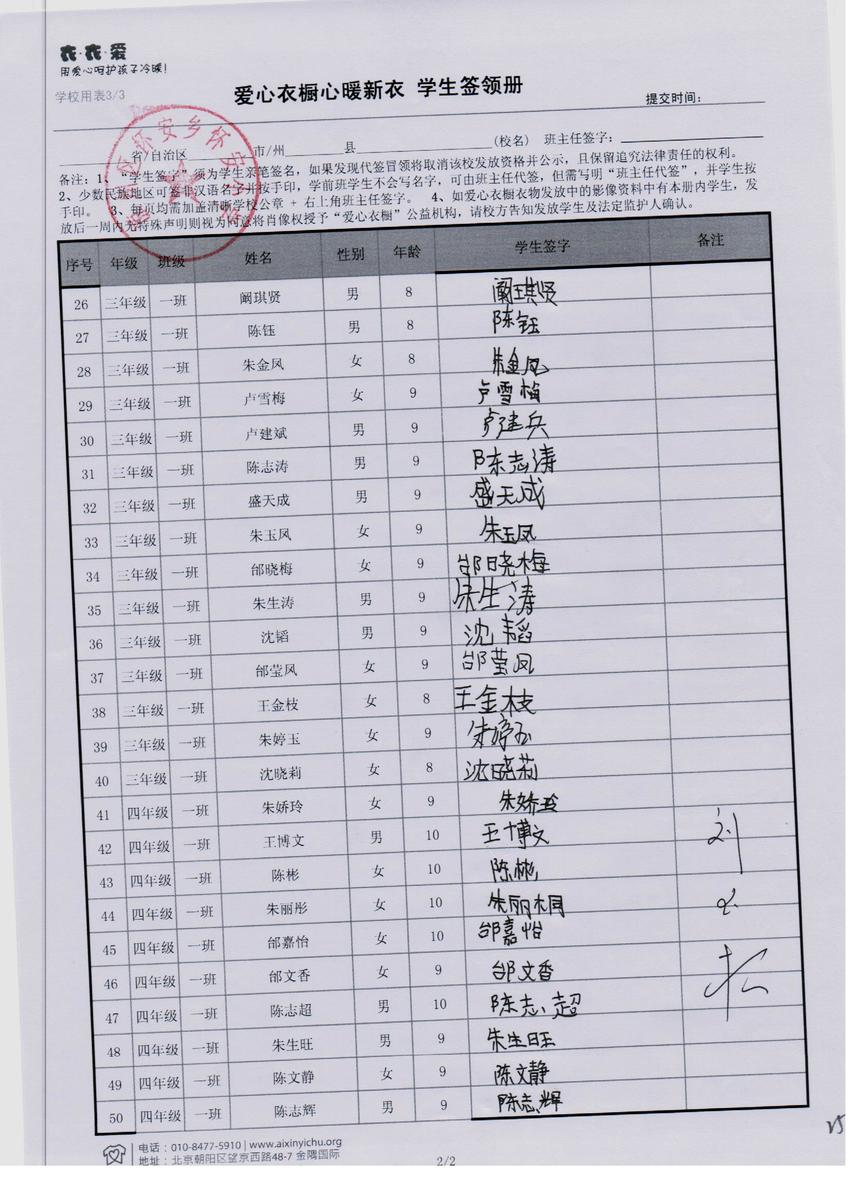 衣·衣·爱
用爱心呵护孩子冷暖!
学校用表3/3
爱心衣橱心暖新衣 学生签领册
提交时间:
省/自治区 市/州 县 (校名) 班主任签字:
备注:1、“学生签字”须为学生亲笔签名,如果发现代签冒领将取消该校发放资格并公示,且保留追究法律责任的权利。
2、少数民族地区可签非汉语名字并按手印,学前班学生不会写名字,可由班主任代签,但需写明“班主任代签”,并学生按
手印。 3、每页均需加盖清晰学校公章 + 右上角班主任签字。 4、如爱心衣橱衣物发放中的影像资料中有本册内学生,发
放后一周内无特殊声明则视为同意将肖像权授予“爱心衣橱”公益机构,请校方告知发放学生及法定监护人确认。
区怀安乡怀安
序号 年级 班级 姓名 性别 年龄 学生签字 备注
26 三年级 一班 阚琪贤 男 8 阚琪贤
27 三年级 一班 陈钰 男 8 陈钰
28 三年级 一班 朱金凤 女 8 朱金凤
29 三年级 一班 卢雪梅 女 9 卢雪梅
30 三年级 一班 卢建斌 男 9 卢建兵
31 三年级 一班 陈志涛 男 9 陈志涛
32 三年级 一班 盛天成 男 9 盛天成
33 三年级 一班 朱玉凤 女 9 朱玉凤
34 三年级 一班 邰晓梅 女 9 邰晓梅
35 三年级 一班 朱生涛 男 9 朱生涛
36 三年级 一班 沈韬 男 9 沈韬
37 三年级 一班 邰莹凤 女 9 邰莹凤
38 三年级 一班 王金枝 女 8 王金枝
39 三年级 一班 朱婷玉 女 9 朱婷玉
40 三年级 一班 沈晓莉 女 8 沈晓莉
41 四年级 一班 朱娇玲 女 9 朱娇玲
42 四年级 一班 王博文 男 10 王博文 刘
43 四年级 一班 陈彬 女 10 陈彬
44 四年级 一班 朱丽彤 女 10 朱丽桐
45 四年级 一班 邰嘉怡 女 10 邰嘉怡
46 四年级 一班 邰文香 女 9 邰文香
47 四年级 一班 陈志超 男 10 陈志超
48 四年级 一班 朱生旺 男 9 朱生旺
49 四年级 一班 陈文静 女 9 陈文静
50 四年级 一班 陈志辉 男 9 陈志辉
电话:010-8477-5910 | www.aixinyichu.org
地址:北京朝阳区望京西路48-7 金隅国际
2/2